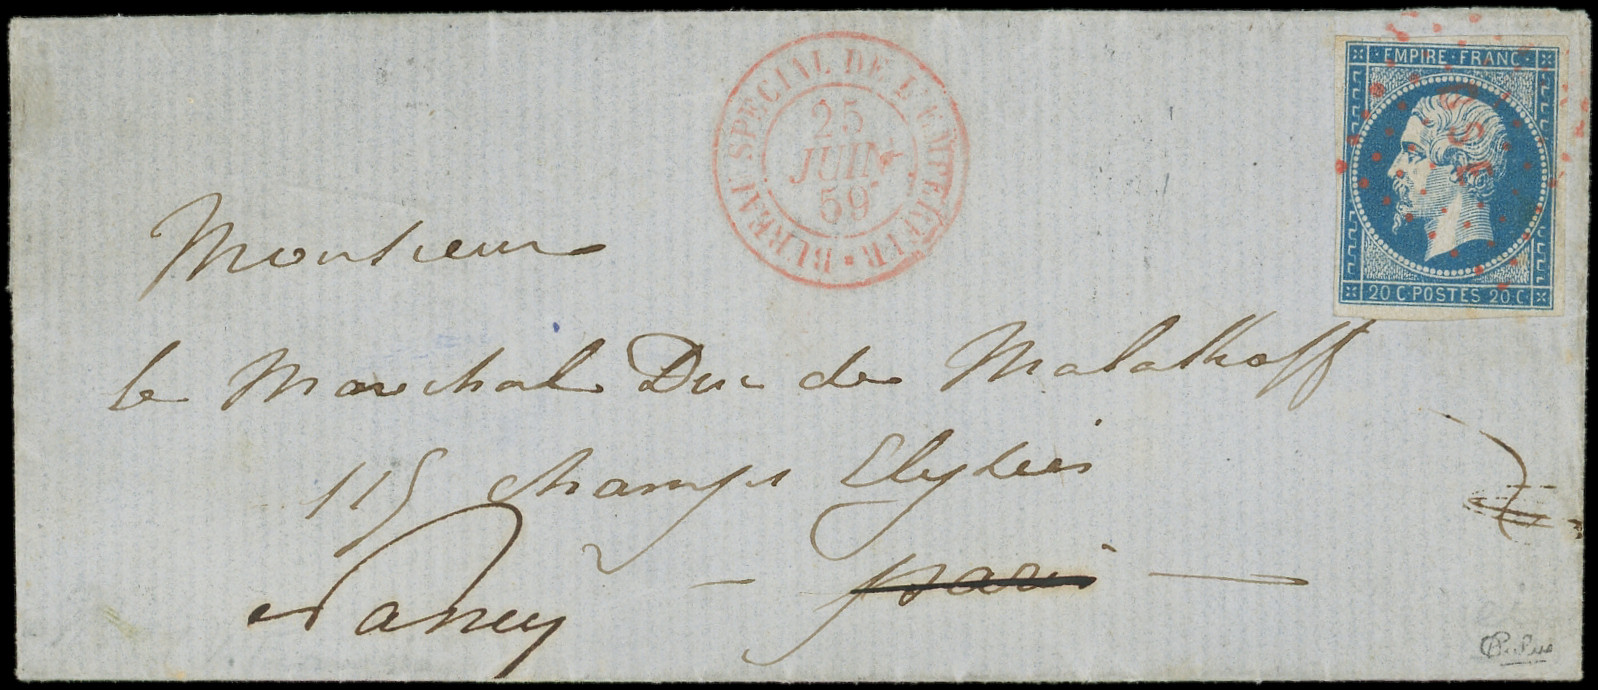 BUREAU SPECIAL DE L'EMPEREUR
25
JUIN
59
EMPIRE FRANC
20 C POSTES 20 C
Monsieur
le Marechal Duc de Malakoff
115 champs Elysées
Nancy - paris -